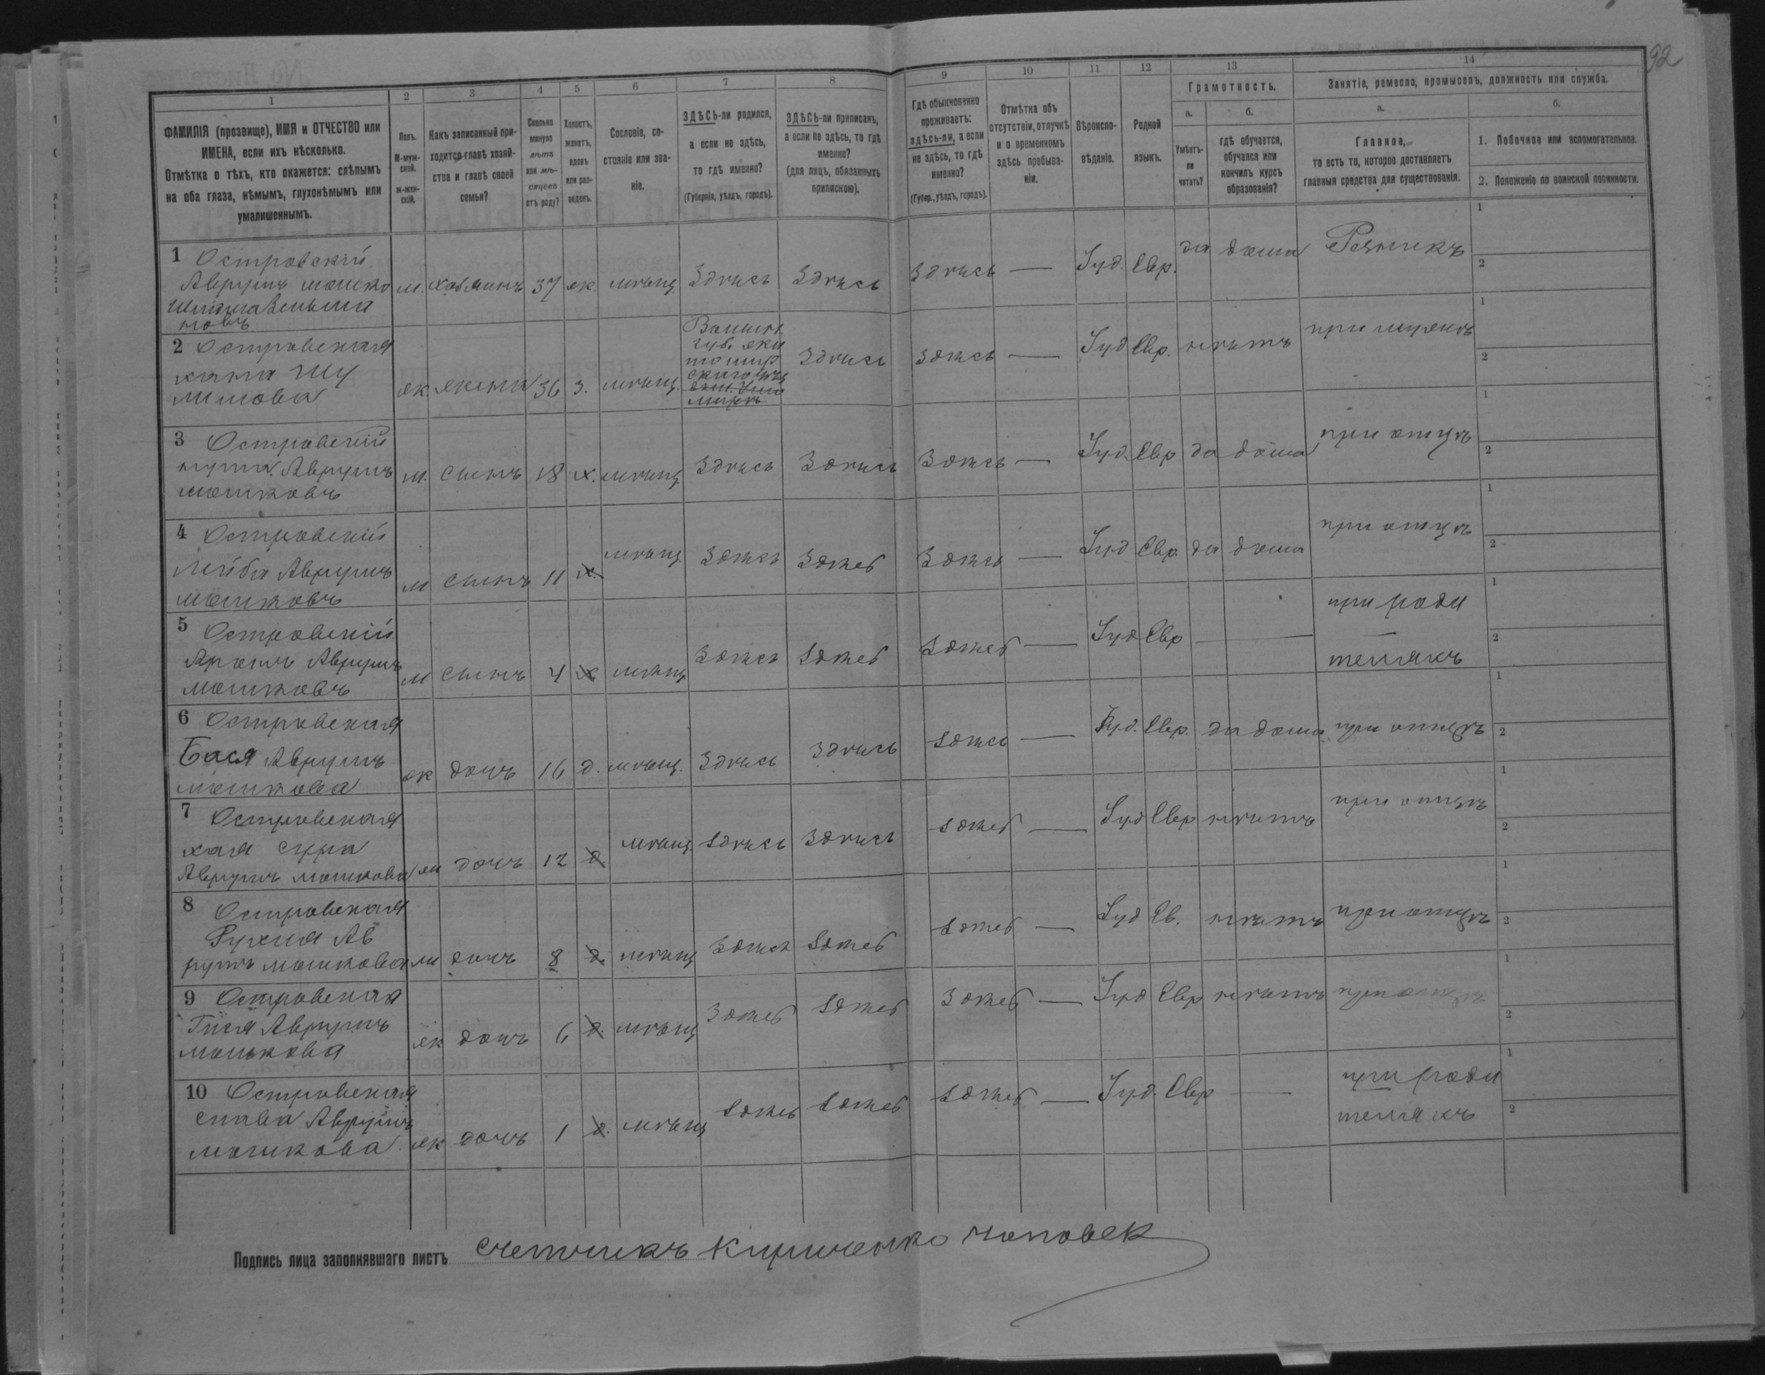 92
1 2 3 4 5 6 7 8 9 10 11 12 13 14
ФАМИЛІЯ (прозвище), ИМЯ и ОТЧЕСТВО или
ИМЕНА, если ихъ нѣсколько.
Отмѣтка о тѣхъ, кто окажется: слѣпымъ
на оба глаза, нѣмымъ, глухонѣмымъ или
умалишеннымъ.
Полъ.
М-муж-
ской.
ж-жен-
скій.
Какъ записанный при-
ходится главѣ хозяй-
ства и главѣ своей
семьи?
Сколько
минуло
лѣтъ
или мѣ-
сяцевъ
отъ роду?
Холостъ,
женатъ,
вдовъ
или раз-
веденъ.
Сословіе, со-
стояніе или зва-
ніе.
ЗДѢСЬ-ли родился,
а если не здѣсь,
то гдѣ именно?
(Губернія, уѣздъ, городъ).
ЗДѢСЬ-ли приписанъ,
а если не здѣсь, то гдѣ
именно?
(для лицъ, обязанныхъ
припискою).
Гдѣ обыкновенно
проживаетъ:
здѣсь-ли, а если
не здѣсь, то гдѣ
именно?
(Губер., уѣздъ, городъ).
Отмѣтка объ
отсутствіи, отлучкѣ
и о временномъ
здѣсь пребыва-
ніи.
Вѣроиспо-
вѣданіе.
Родной
языкъ.
Грамотность.
а.
Умѣетъ-
ли
читать?
б.
гдѣ обучается,
обучался или
кончилъ курсъ
образованія?
Занятіе, ремесло, промыселъ, должность или служба.
а.
Главное,
то есть то, которое доставляетъ
главныя средства для существованія.
б.
1. Побочное или вспомогательное.
2. Положеніе по воинской повинности.
1 Островскій
Аврумъ мошко
м. хозяинъ 37 ж мѣщ Здѣсь Здѣсь Здѣсь — Іуд. Евр. да дома Рѣзникъ
2 Островская
хана Шу
лимова
ж. жена 36 з. мѣщ. Волын.
губ. жи
томир
скаго
Здѣсь Здѣсь — Іуд Евр. нѣтъ при мужѣ
3 Островскій
Аврумъ
мошковъ
м. сынъ 18 х. мѣщ Здѣсь Здѣсь Здѣсь — Іуд Евр да дома при отцѣ
4 Островскій
Лейба Аврумъ
мошковъ
м сынъ 11 х мѣщ Здѣсь Здѣсь Здѣсь — Іуд Евр да дома при отцѣ
5 Островскій
Аврумъ
мошковъ
м сынъ 4 х мѣщ Здѣсь Здѣсь Здѣсь — Іуд Евр — — при роди
теляхъ
6 Островская
Бася Аврумъ
мошкова
ж дочь 16 д. мѣщ. Здѣсь Здѣсь Здѣсь — Іуд. Евр. да дома при отцѣ
7 Островская
хая сура
Аврумъ мошкова
ж дочь 12 д мѣщ Здѣсь Здѣсь Здѣсь — Іуд Евр нѣтъ при отцѣ
8 Островская
Рухля Ав
румъ мошкова
ж дочь 8 д. мѣщ Здѣсь Здѣсь Здѣсь — Іуд Ев. нѣтъ при отцѣ
9 Островская
Гися Аврумъ
мошкова
ж дочь 6 д. мѣщ Здѣсь Здѣсь Здѣсь — Іуд Евр нѣтъ при отцѣ
10 Островская
слава Аврумъ
мошкова
ж дочь 1 д. мѣщ Здѣсь Здѣсь Здѣсь — Іуд Евр — при роди
теляхъ
Подпись лица заполнявшаго листъ счетчикъ